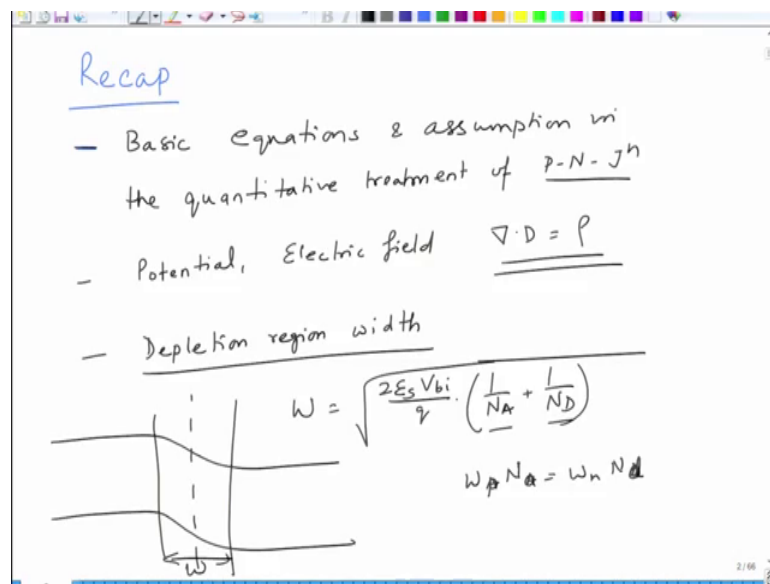 Recap
– Basic equations & assumption in
the quantitative treatment of P-N-Jⁿ
– Potential, Electric field ∇·D = ρ
– Depletion region width
W = √(2εₛVbi/q · (1/NA + 1/ND))
Wp Na = Wn Nd
W
2/66